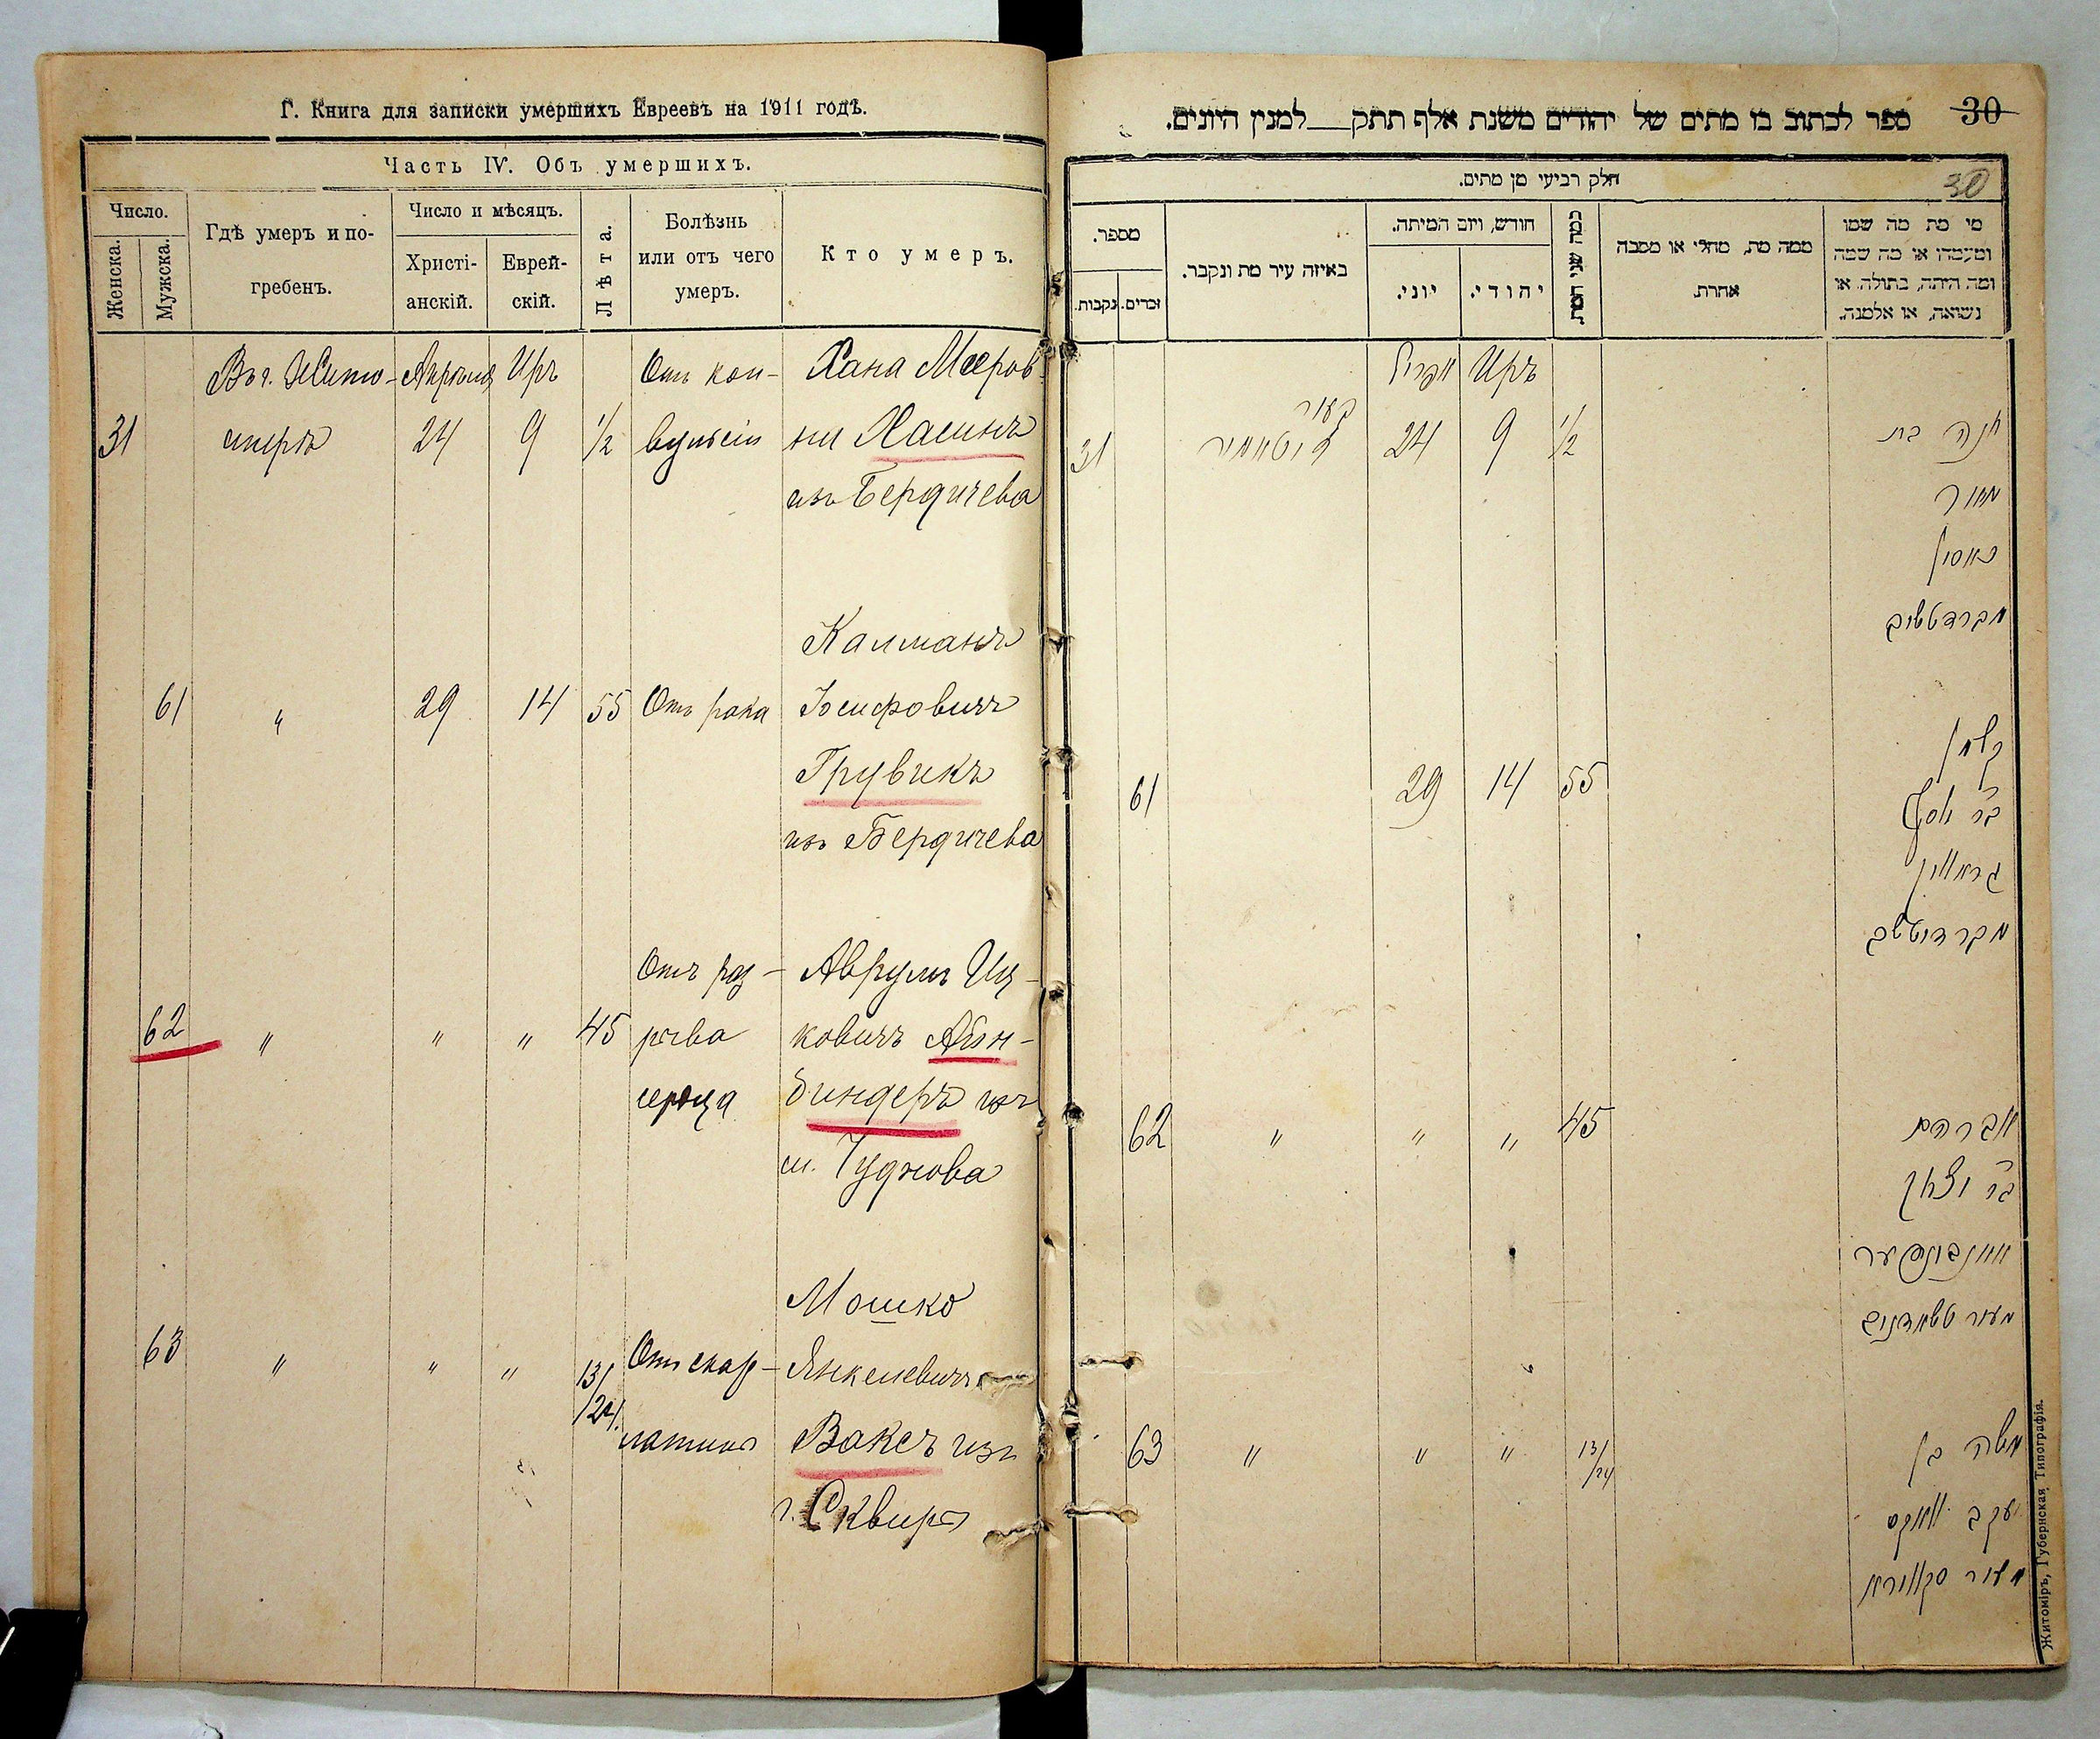 Г. Книга для записки умершихъ Евреевъ на 1911 годъ.
Часть IV. Объ умершихъ.
Число.
Женска.
Мужска.
Гдѣ умеръ и по-
гребенъ.
Число и мѣсяцъ.
Христі-
анскій.
Еврей-
скій.
Лѣта.
Болѣзнь
или отъ чего
умеръ.
Кто умеръ.
Въ г. Жито- Апрѣля Иръ Отъ кон- Хана Мееров-
31 мирѣ 24 9 1/2 вульсіи на Хасинъ
изъ Бердичева
Калманъ
61 " 29 14 55 Отъ рака Іосифовичъ
Грувикъ
изъ Бердичева
Отъ раз- Аврумъ Иц-
62 " " " 45 рыва ковичъ Айн-
сердца биндеръ изъ
м. Чуднова
Мошко
63 " " " 13/24 Отъ скар- Янкелевичъ
латины Ваксъ изъ
г. Сквиры
30
ספר לכתוב בו מתים של יהודים משנת אלף תתק___למנין היונים.
30
חלק רביעי מן מתים.
מספר.
נקבות.
זכרים.
באיזה עיר מת ונקבר.
חודש, ויום המיתה.
יוני.
יהודי.
כמה שני המת
ממה מת, מחלי או מסבה
אחרת.
מי מת מה שמו
ומעמדו או מה שמה
ומה היתה, בתולה או
נשואה, או אלמנה.
אפריל Иръ
בעיר
31 זיטאמיר 24 9 1/2 חנה בת
מאיר
כאסין
מברדטשיב
קלמן
61 29 14 55 בר יוסף
מברדיטשב
62 " " " 45 אברהם
בר יצחק
איינבינדער
מעיר טשאדנוב
63 " " " 13/24 משה בן
יעקב וואקס
מעיר סקווירא
Житоміръ, Губернская Типографія.